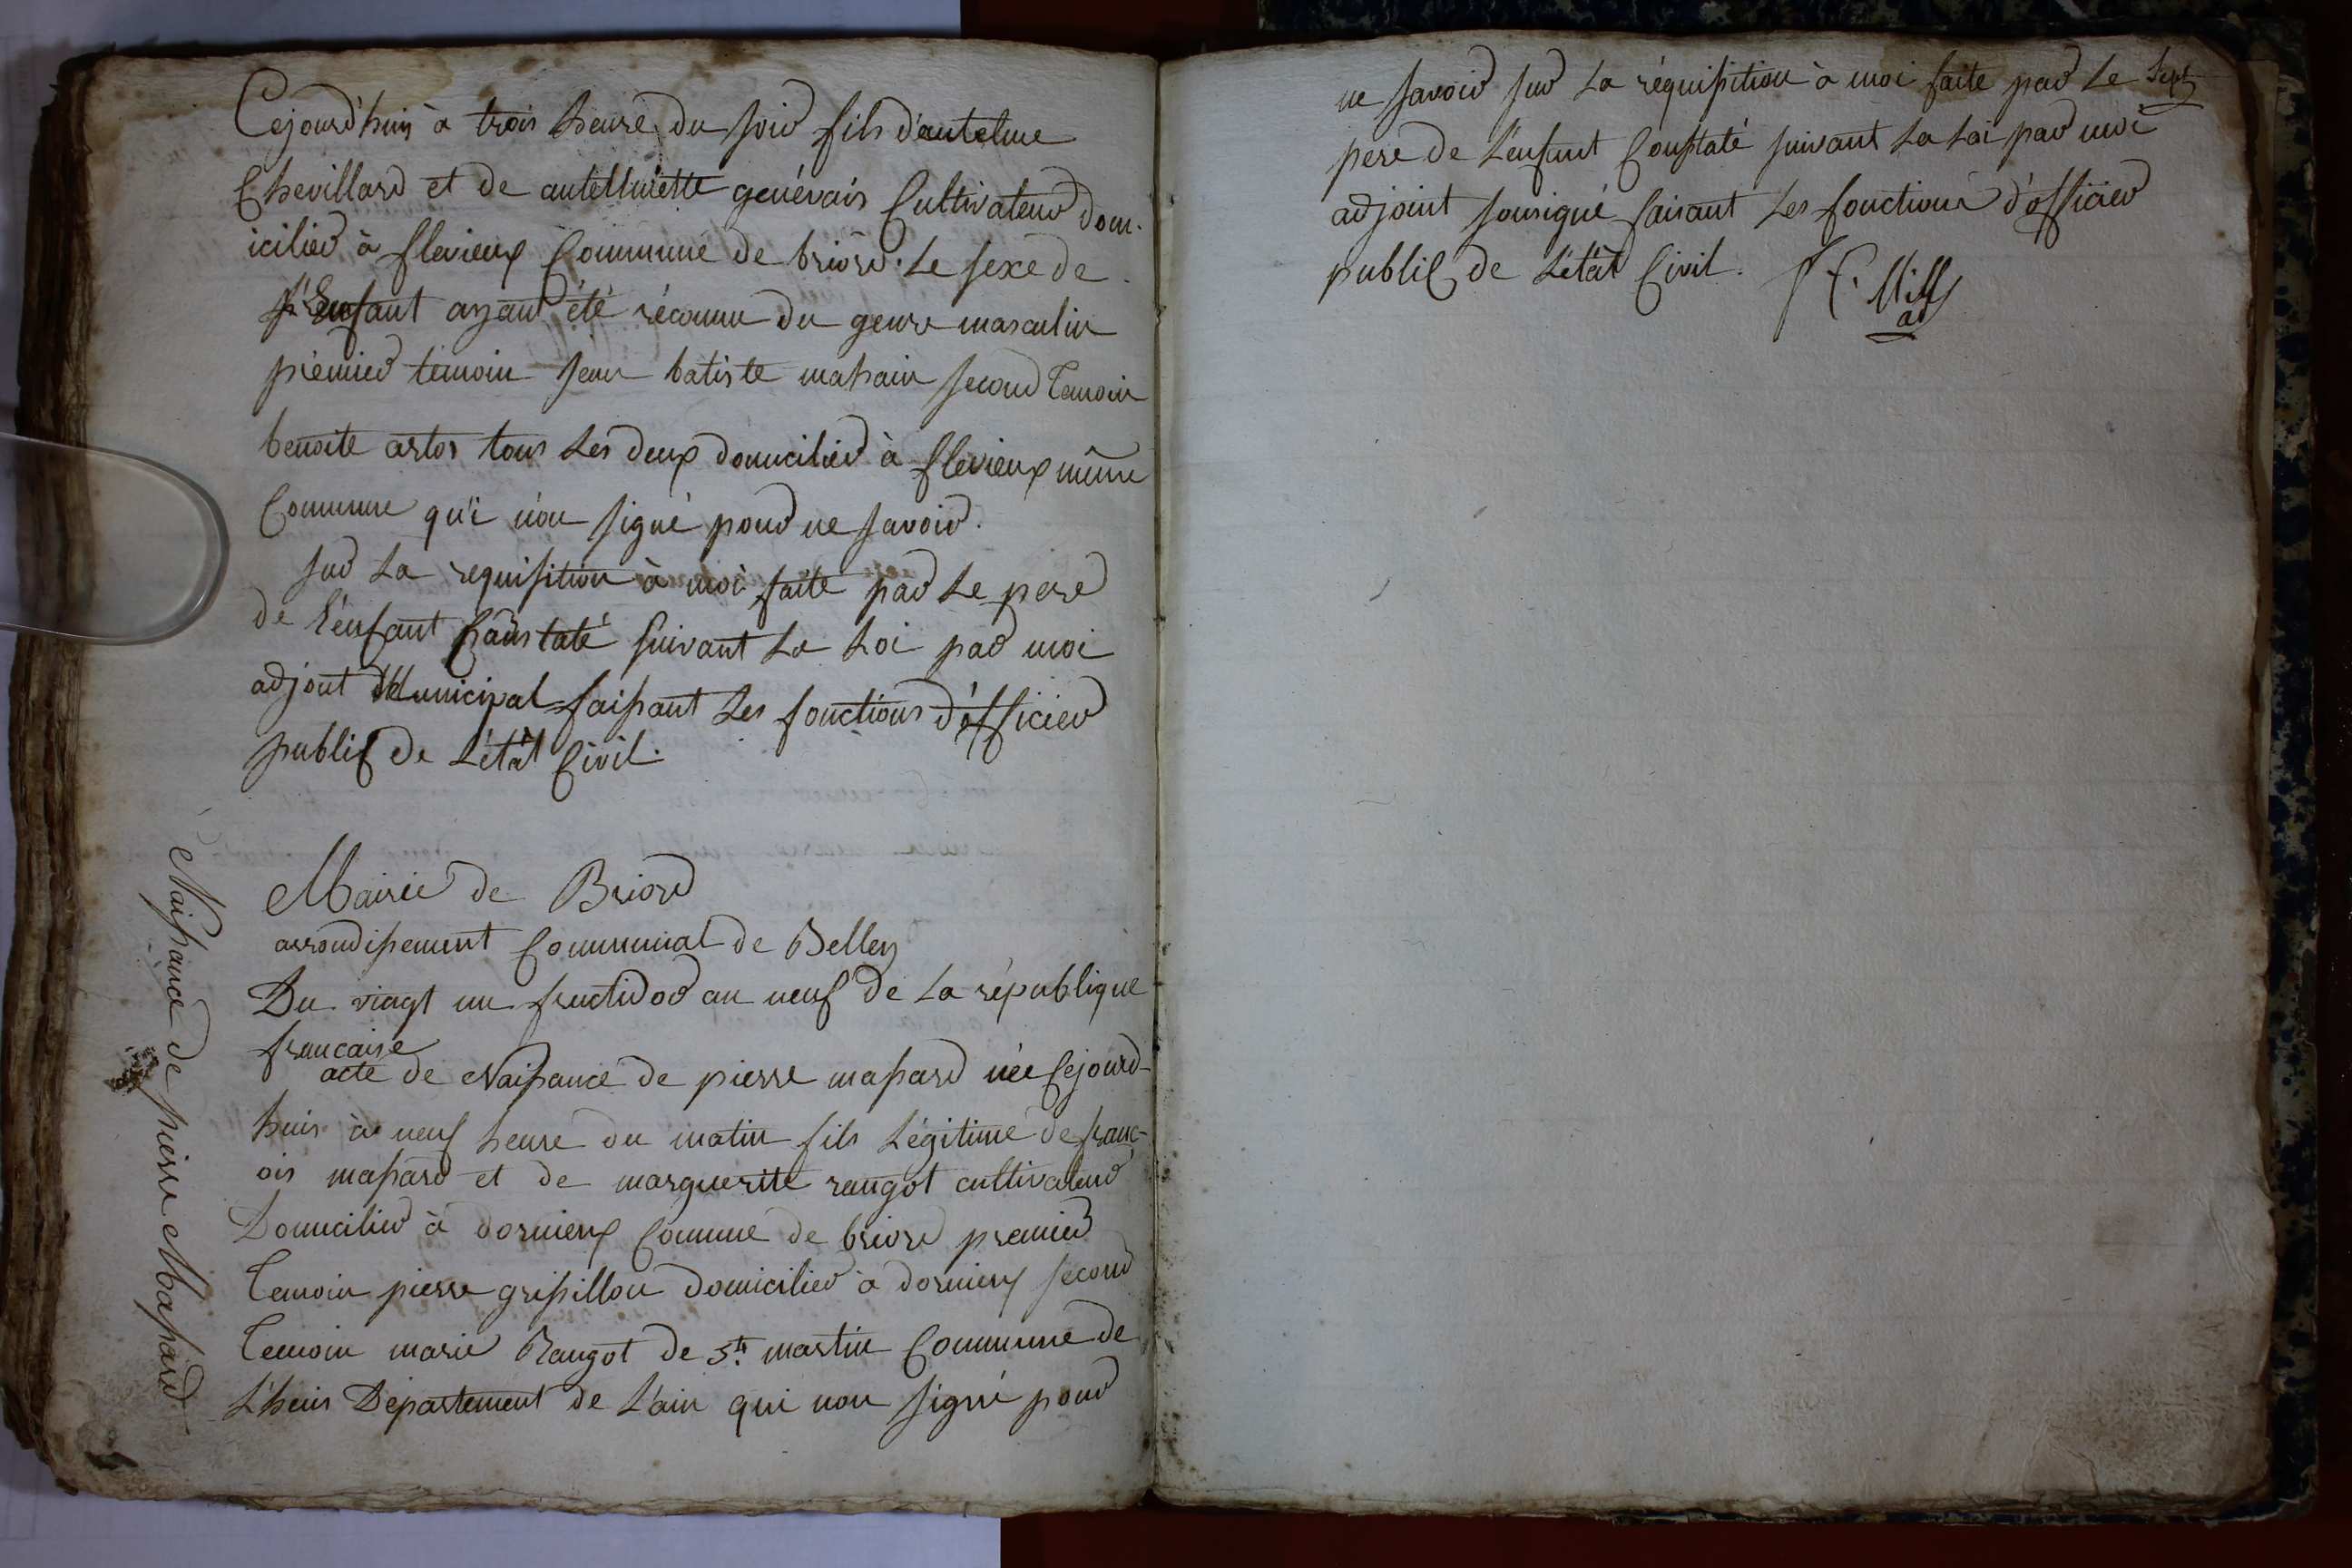 Cejourd'huy à trois heure du soir fils d'antelme
Chevillard et de antelmette genévais Cultivateur dom-
icilier à flevieux Commune de briord. Le sexe de
l'Enfant ayant été réconnu du genre masculin
prémier témoin jean batiste mahain second Temoin
benoite artos tous Les deux domicilier à flevieux même
Commune qu'i n'on signé pour ne savoir.
sur La requisition à moi faite par Le pere
de l'enfant Constaté suivant La Loi par moi
adjout Municipal faisant Les fonctions d'officier
public de L'étât Civil.
Naissance de pierre Massard
Mairie de Briord
arrondissement Communal de Belley
Du viagt un fructidor an neuf de La république
francaise
acte de Naissance de pierre massard née Cejourd-
huis à neuf heure du matin fils Légitime de franc-
ois massard et de marguerite rangot cultivateur
Domicilier à dornieux Comune de briord premier
Temoin pierre grisillon domicilier à dornieux second
Temoin marie Rangot de St. martin Commune de
L'huis Département de L'ain qui non signé pour
ne savoir sur La réquisition à moi faite par Le
pere de L'enfant Constaté suivant La Loi par moi
adjoint sousigné faisant Les fonctions d'officier
public de L'étât Civil.